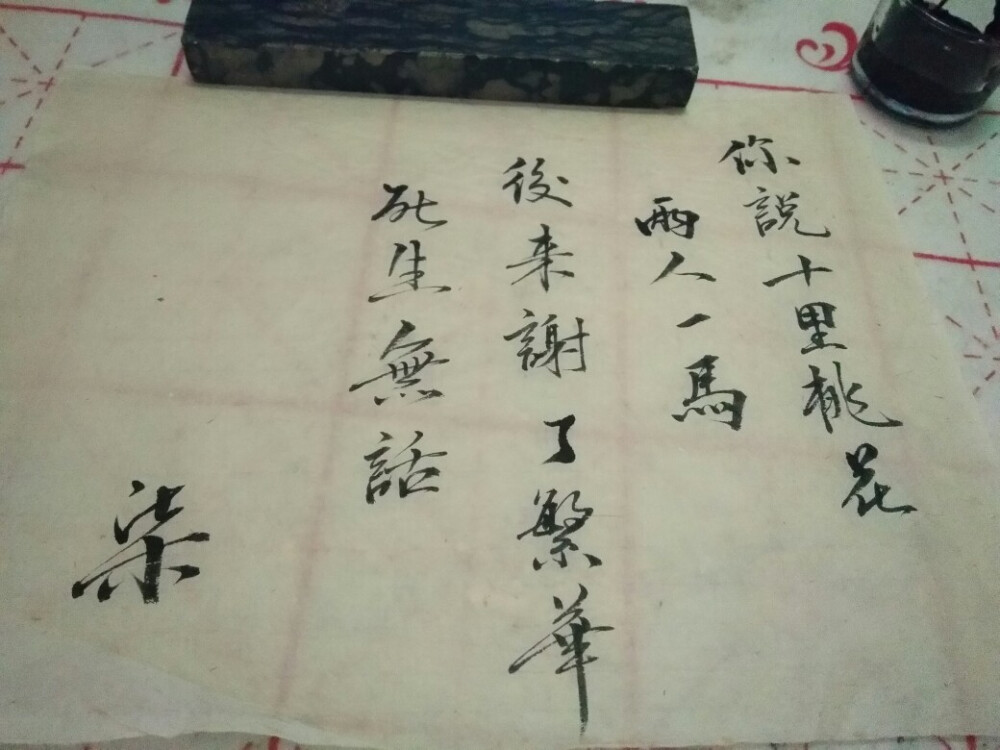 你説十里桃花
兩人一馬
後来謝了繁華
死生無話
柒